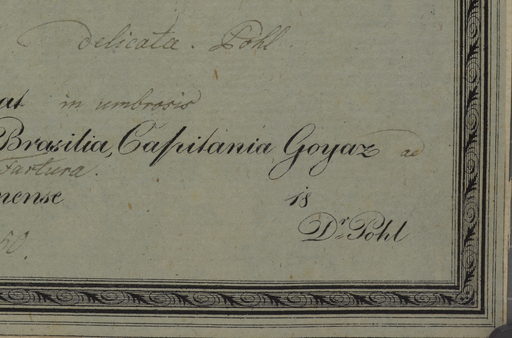 delicata. Pohl
at in umbrosis
Brasilia, Capitania Goyaz ad
Fartura.
mense 18
Dr. Pohl
50.